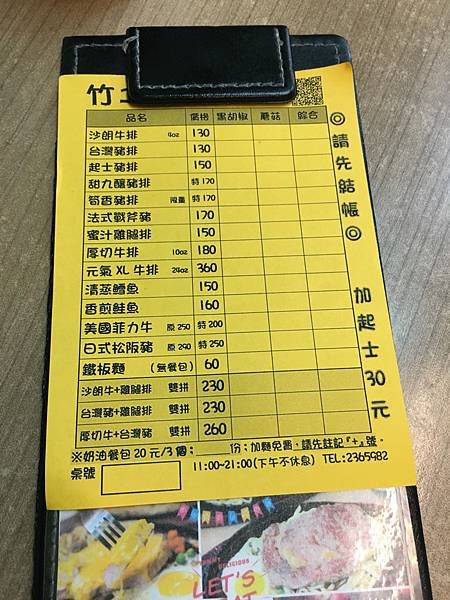 竹
品名 價格 黑胡椒 蘑菇 綜合
沙朗牛排 4oz 130
台灣豬排 130
起士豬排 150
甜九釀豬排 特170
筍香豬排 限量 特170
法式戰斧豬 170
蜜汁雞腿排 150
厚切牛排 10oz 180
元氣XL牛排 24oz 360
清蒸鱈魚 150
香煎鮭魚 160
美國菲力牛 原250 特200
日式松阪豬 原290 特250
鐵板麵 (無餐包) 60
沙朗牛+雞腿排 雙拼 230
台灣豬+雞腿排 雙拼 230
厚切牛+台灣豬 雙拼 260
※奶油餐包20元/3個：____份；加麵免費，請先註記『+』號。
桌號
11:00~21:00(下午不休息) TEL:2365982
◎請先結帳◎
加起士30元
DELICIOUS
LET'S